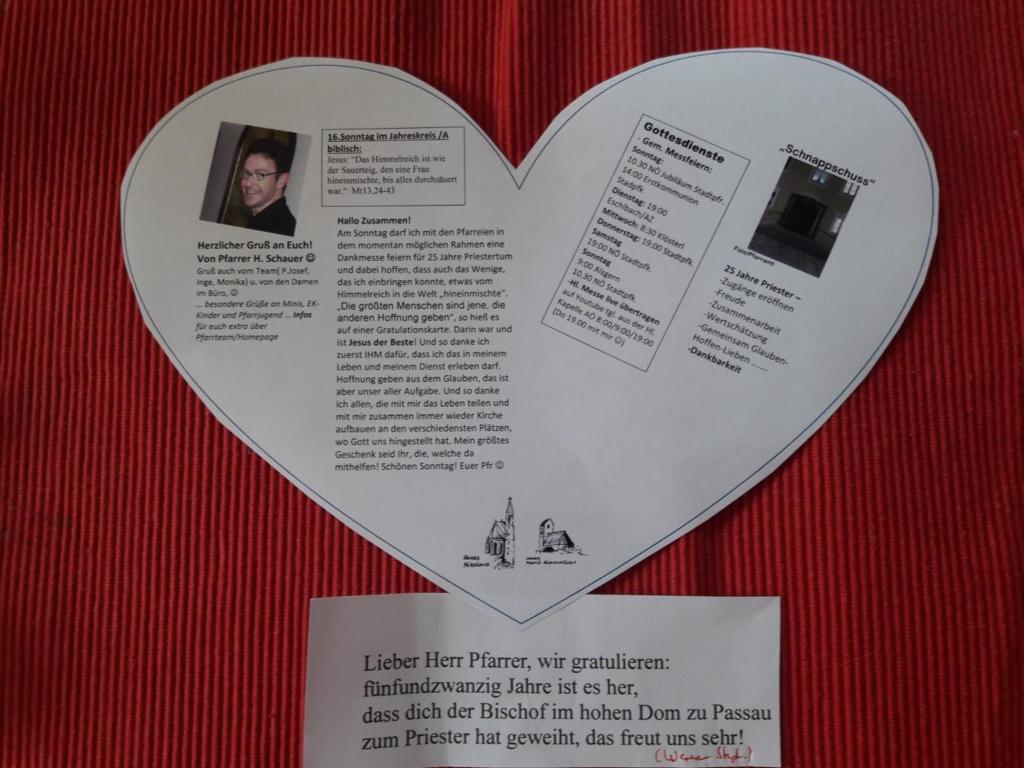 16.Sonntag im Jahreskreis /A
biblisch:
Jesus: "Das Himmelreich ist wie
der Sauerteig, den eine Frau
hineinmischte, bis alles durchsäuert
war." Mt13,24-43
Herzlicher Gruß an Euch!
Von Pfarrer H. Schauer ☺
Gruß auch vom Team( P.Josef,
Inge, Monika) u. von den Damen
im Büro, ☺
... besondere Grüße an Minis, EK-
Kinder und Pfarrjugend ... Infos
für euch extra über
Pfarrteam/Homepage
Hallo Zusammen!
Am Sonntag darf ich mit den Pfarreien in
dem momentan möglichen Rahmen eine
Dankmesse feiern für 25 Jahre Priestertum
und dabei hoffen, dass auch das Wenige,
das ich einbringen konnte, etwas vom
Himmelreich in die Welt „hineinmischte".
„Die größten Menschen sind jene, die
anderen Hoffnung geben", so hieß es
auf einer Gratulationskarte. Darin war und
ist Jesus der Beste! Und so danke ich
zuerst IHM dafür, dass ich das in meinem
Leben und meinem Dienst erleben darf.
Hoffnung geben aus dem Glauben, das ist
aber unser aller Aufgabe. Und so danke
ich allen, die mit mir das Leben teilen und
mit mir zusammen immer wieder Kirche
aufbauen an den verschiedensten Plätzen,
wo Gott uns hingestellt hat. Mein größtes
Geschenk seid Ihr, die, welche da
mithelfen! Schönen Sonntag! Euer Pfr ☺
Gottesdienste
- Gem. Messfeiern:
Sonntag:
10.30 NÖ Jubiläum Stadtpfr.
14:00 Erstkommunion
Stadtpfk
Dienstag: 19:00
Eschlbach/AZ
Mittwoch: 8:30 Klösterl
Donnerstag: 19:00 Stadtpfk.
Samstag
19:00 NÖ Stadtpfk.
Sonntag
9:00 Alzgern
10.30 NÖ Stadtpfk.
-Hl. Messe live übertragen
auf Youtube tgl. aus der Hl.
Kapelle AÖ 8:00/9:00/19:00
(Do 19.00 mit mir ☺)
„Schnappschuss"
Foto/Pfarramt
25 Jahre Priester –
-Zugänge eröffnen
-Freude
-Zusammenarbeit
-Wertschätzung
-Gemeinsam Glauben-
Hoffen-Lieben ......
-Dankbarkeit
Lieber Herr Pfarrer, wir gratulieren:
fünfundzwanzig Jahre ist es her,
dass dich der Bischof im hohen Dom zu Passau
zum Priester hat geweiht, das freut uns sehr!